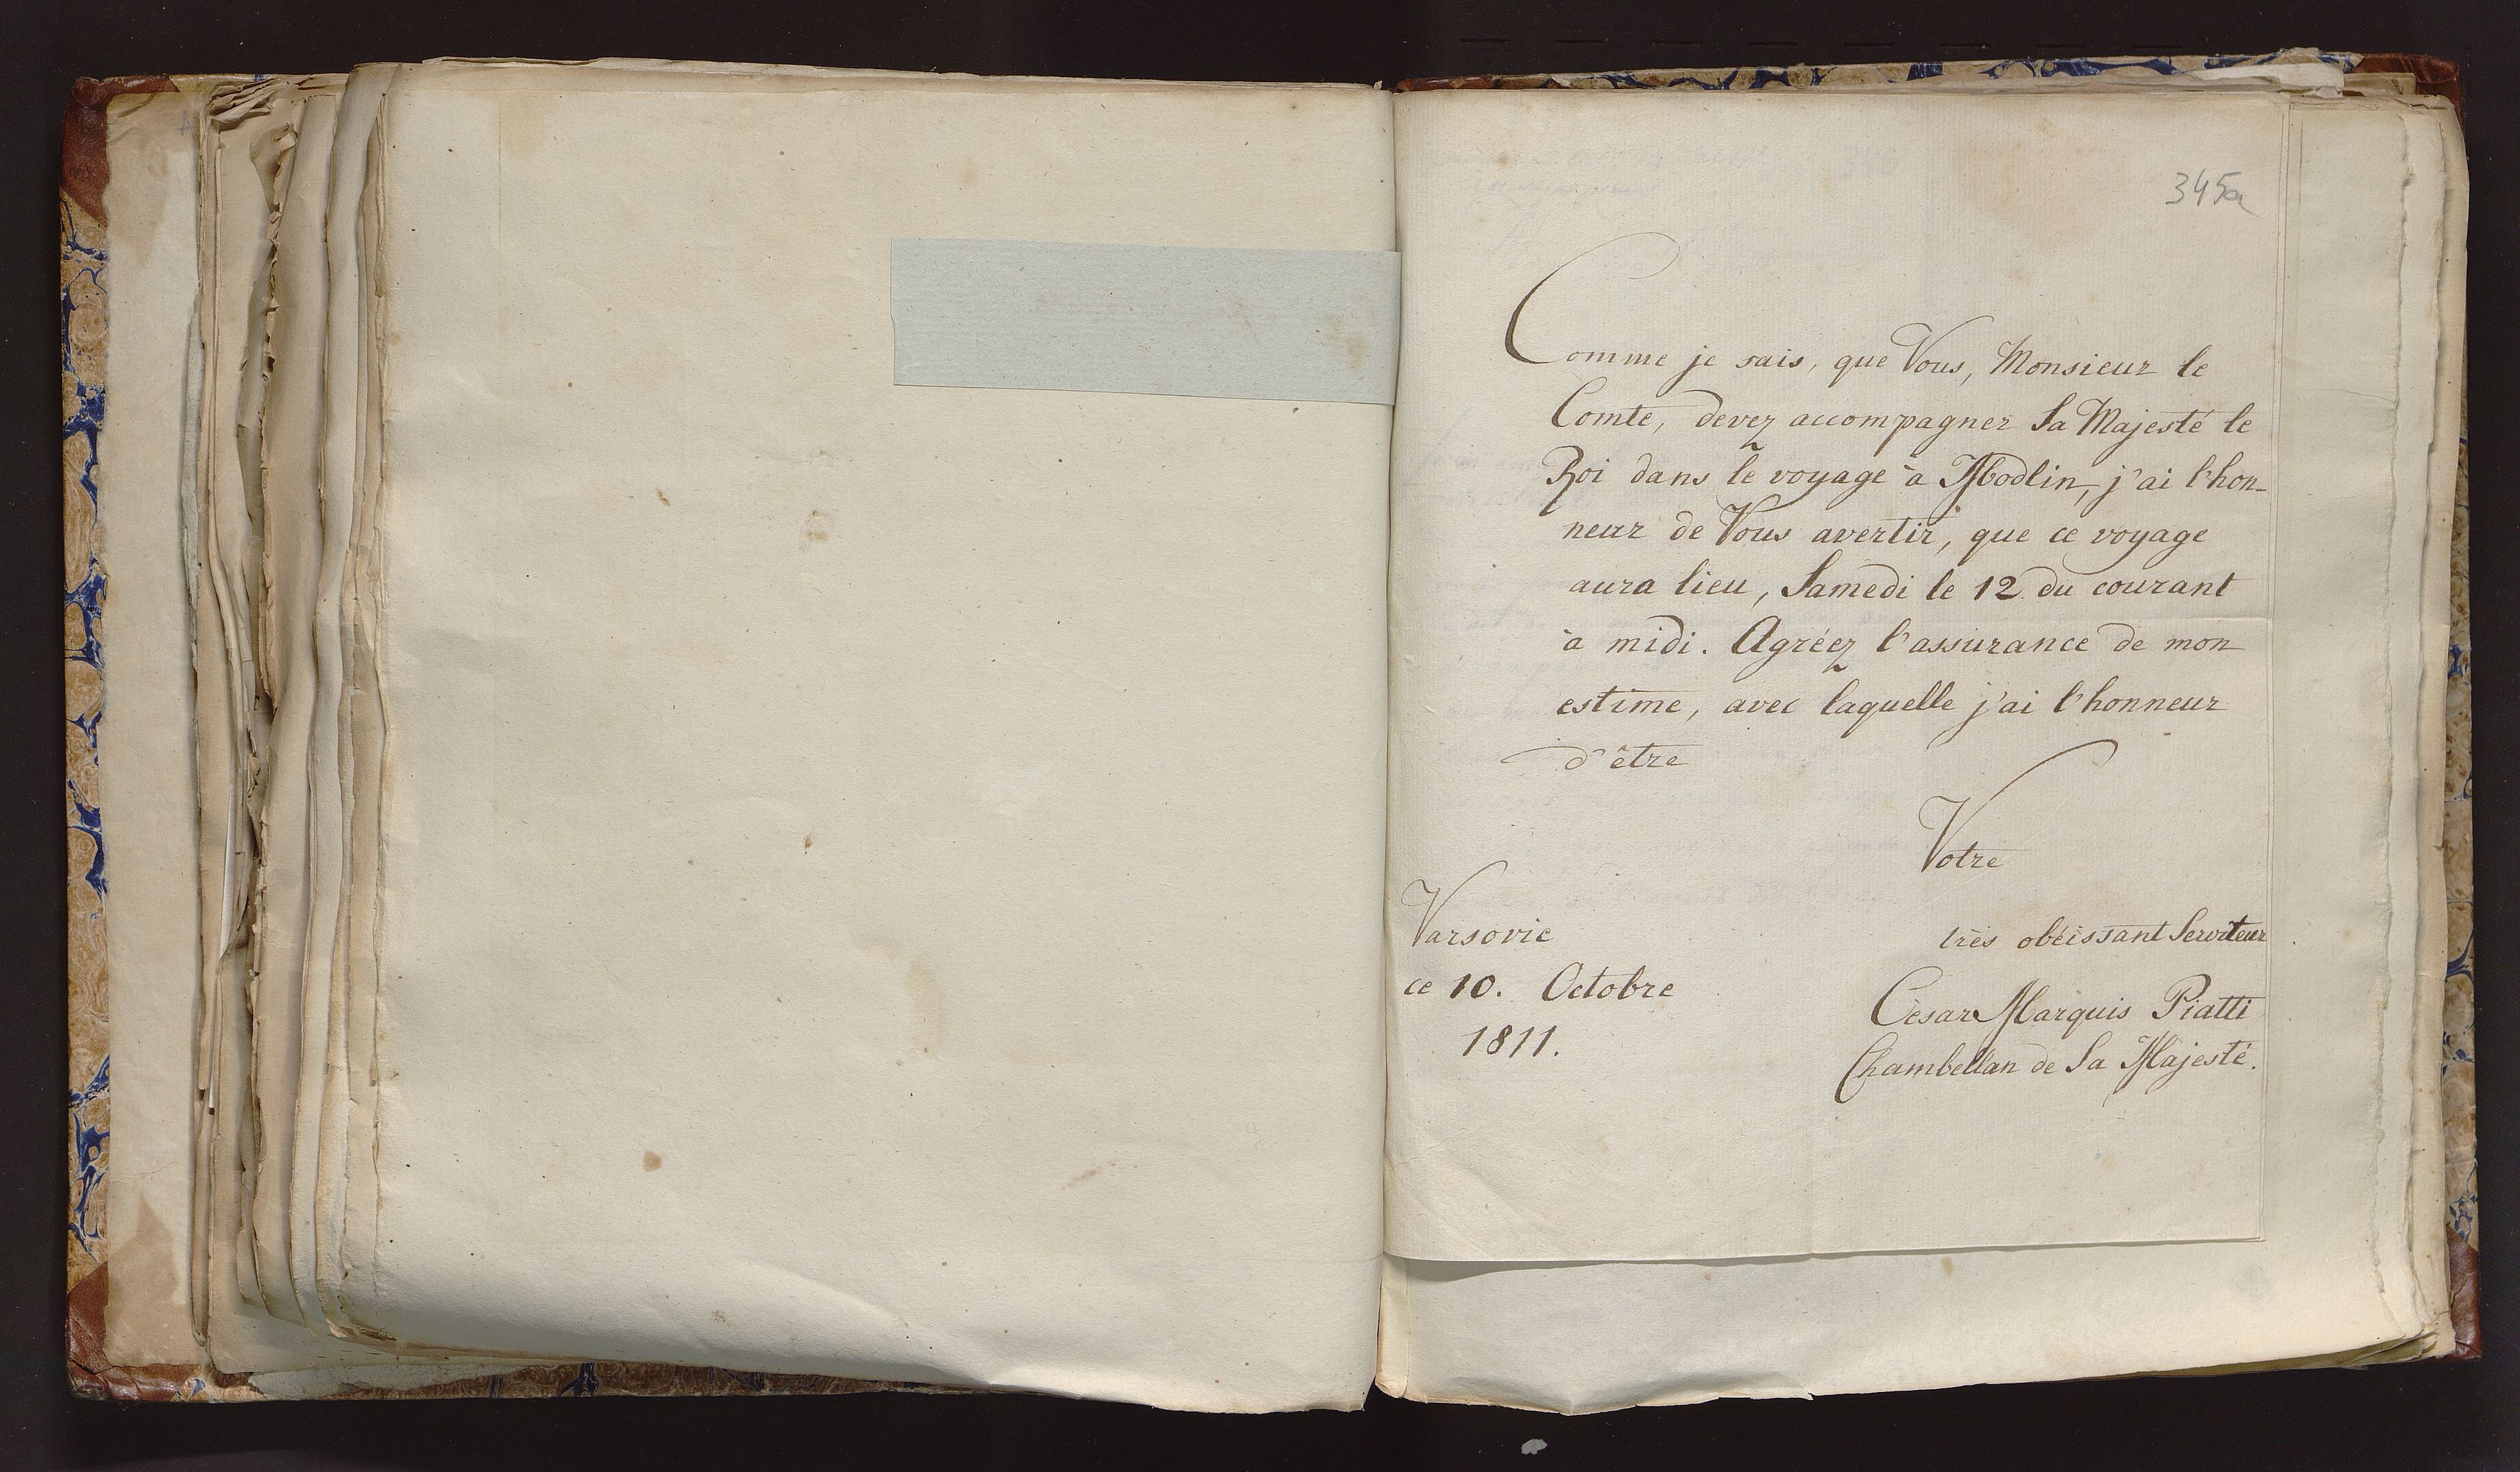 345a
Comme je sais, que Vous, Monsieur le
Comte, devez accompagner Sa Majesté le
Roi dans le voyage à Modlin, j'ai l'hon-
neur de Vous avertir, que ce voyage
aura lieu, Samedi le 12 du courant
à midi. Agréez l'assurance de mon
estime, avec laquelle j'ai l'honneur
d'être
Votre
très obéissant Serviteur
Cèsar Marquis Piatti
Chambellan de Sa Majesté.
Varsovie
ce 10. Octobre
1811.